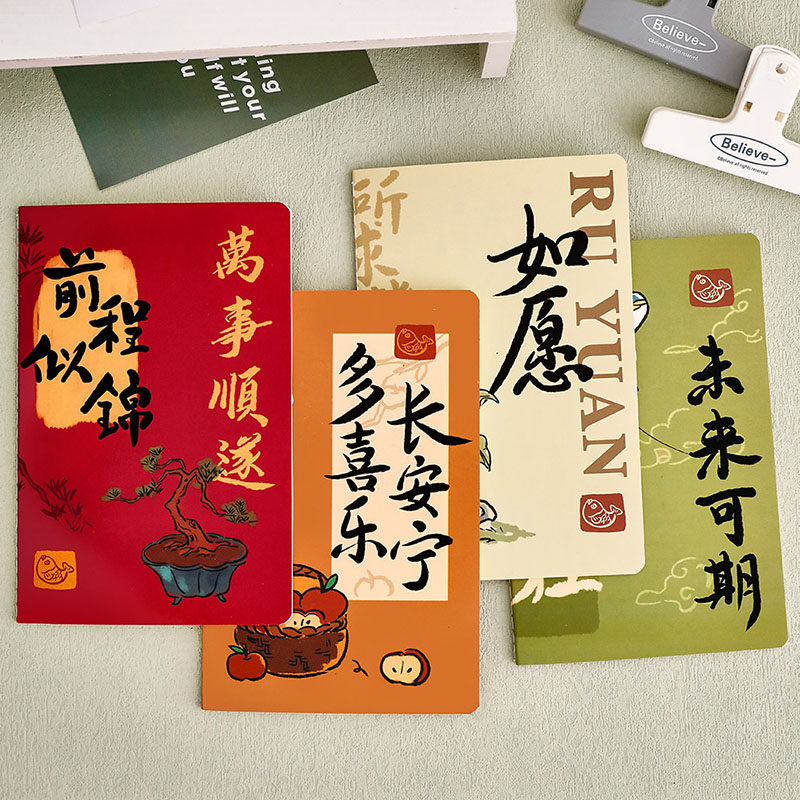 前程
似錦
萬事順遂
多喜乐
长安宁
所求
如愿
RU YUAN
未来可期
Believe-
©Believe all rights reserved.
Believe-
©Believe all rights reserved.
ing
t your
lf will
you